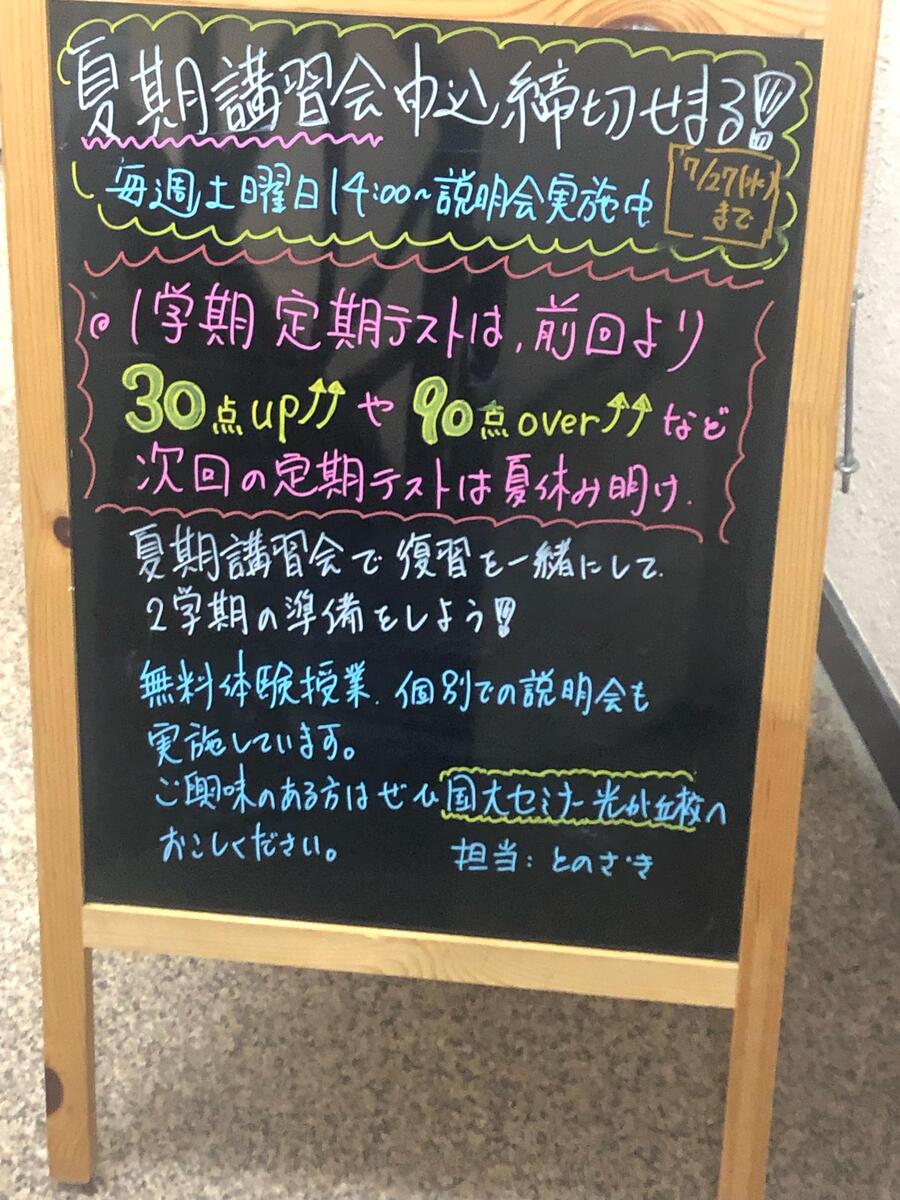 夏期講習会申込締切せまる!!
毎週土曜日14:00~説明会実施中
7/27(水)
まで
◎1学期 定期テストは、前回より
30点up↑↑や90点over↑↑など
次回の定期テストは夏休み明け.
夏期講習会で復習を一緒にして.
2学期の準備をしよう!!
無料体験授業.個別での説明会も
実施しています。
ご興味のある方はぜひ国大セミナー光が丘校へ
おこしください。
担当:とのさき